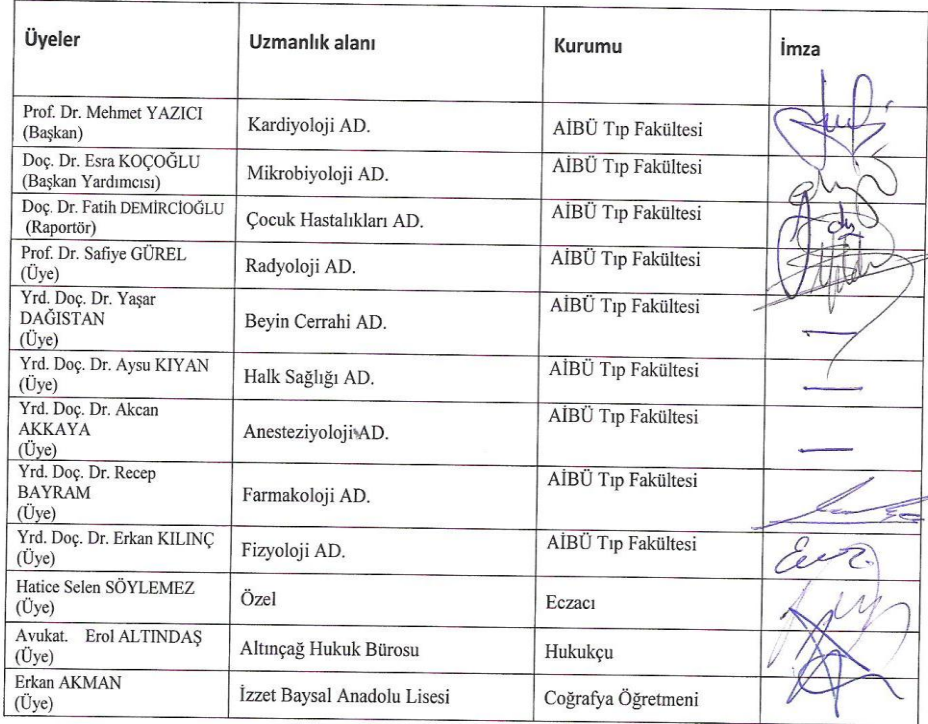 Üyeler Uzmanlık alanı Kurumu İmza
Prof. Dr. Mehmet YAZICI
(Başkan)
Kardiyoloji AD. AİBÜ Tıp Fakültesi
Doç. Dr. Esra KOÇOĞLU
(Başkan Yardımcısı)
Mikrobiyoloji AD. AİBÜ Tıp Fakültesi
Doç. Dr. Fatih DEMİRCİOĞLU
(Raportör)
Çocuk Hastalıkları AD. AİBÜ Tıp Fakültesi
Prof. Dr. Safiye GÜREL
(Üye)
Radyoloji AD. AİBÜ Tıp Fakültesi
Yrd. Doç. Dr. Yaşar
DAĞISTAN
(Üye)
Beyin Cerrahi AD. AİBÜ Tıp Fakültesi
Yrd. Doç. Dr. Aysu KIYAN
(Üye)
Halk Sağlığı AD. AİBÜ Tıp Fakültesi
Yrd. Doç. Dr. Akcan
AKKAYA
(Üye)
Anesteziyoloji AD. AİBÜ Tıp Fakültesi
Yrd. Doç. Dr. Recep
BAYRAM
(Üye)
Farmakoloji AD. AİBÜ Tıp Fakültesi
Yrd. Doç. Dr. Erkan KILINÇ
(Üye)
Fizyoloji AD. AİBÜ Tıp Fakültesi
Hatice Selen SÖYLEMEZ
(Üye)
Özel Eczacı
Avukat. Erol ALTINDAŞ
(Üye)
Altınçağ Hukuk Bürosu Hukukçu
Erkan AKMAN
(Üye)
İzzet Baysal Anadolu Lisesi Coğrafya Öğretmeni